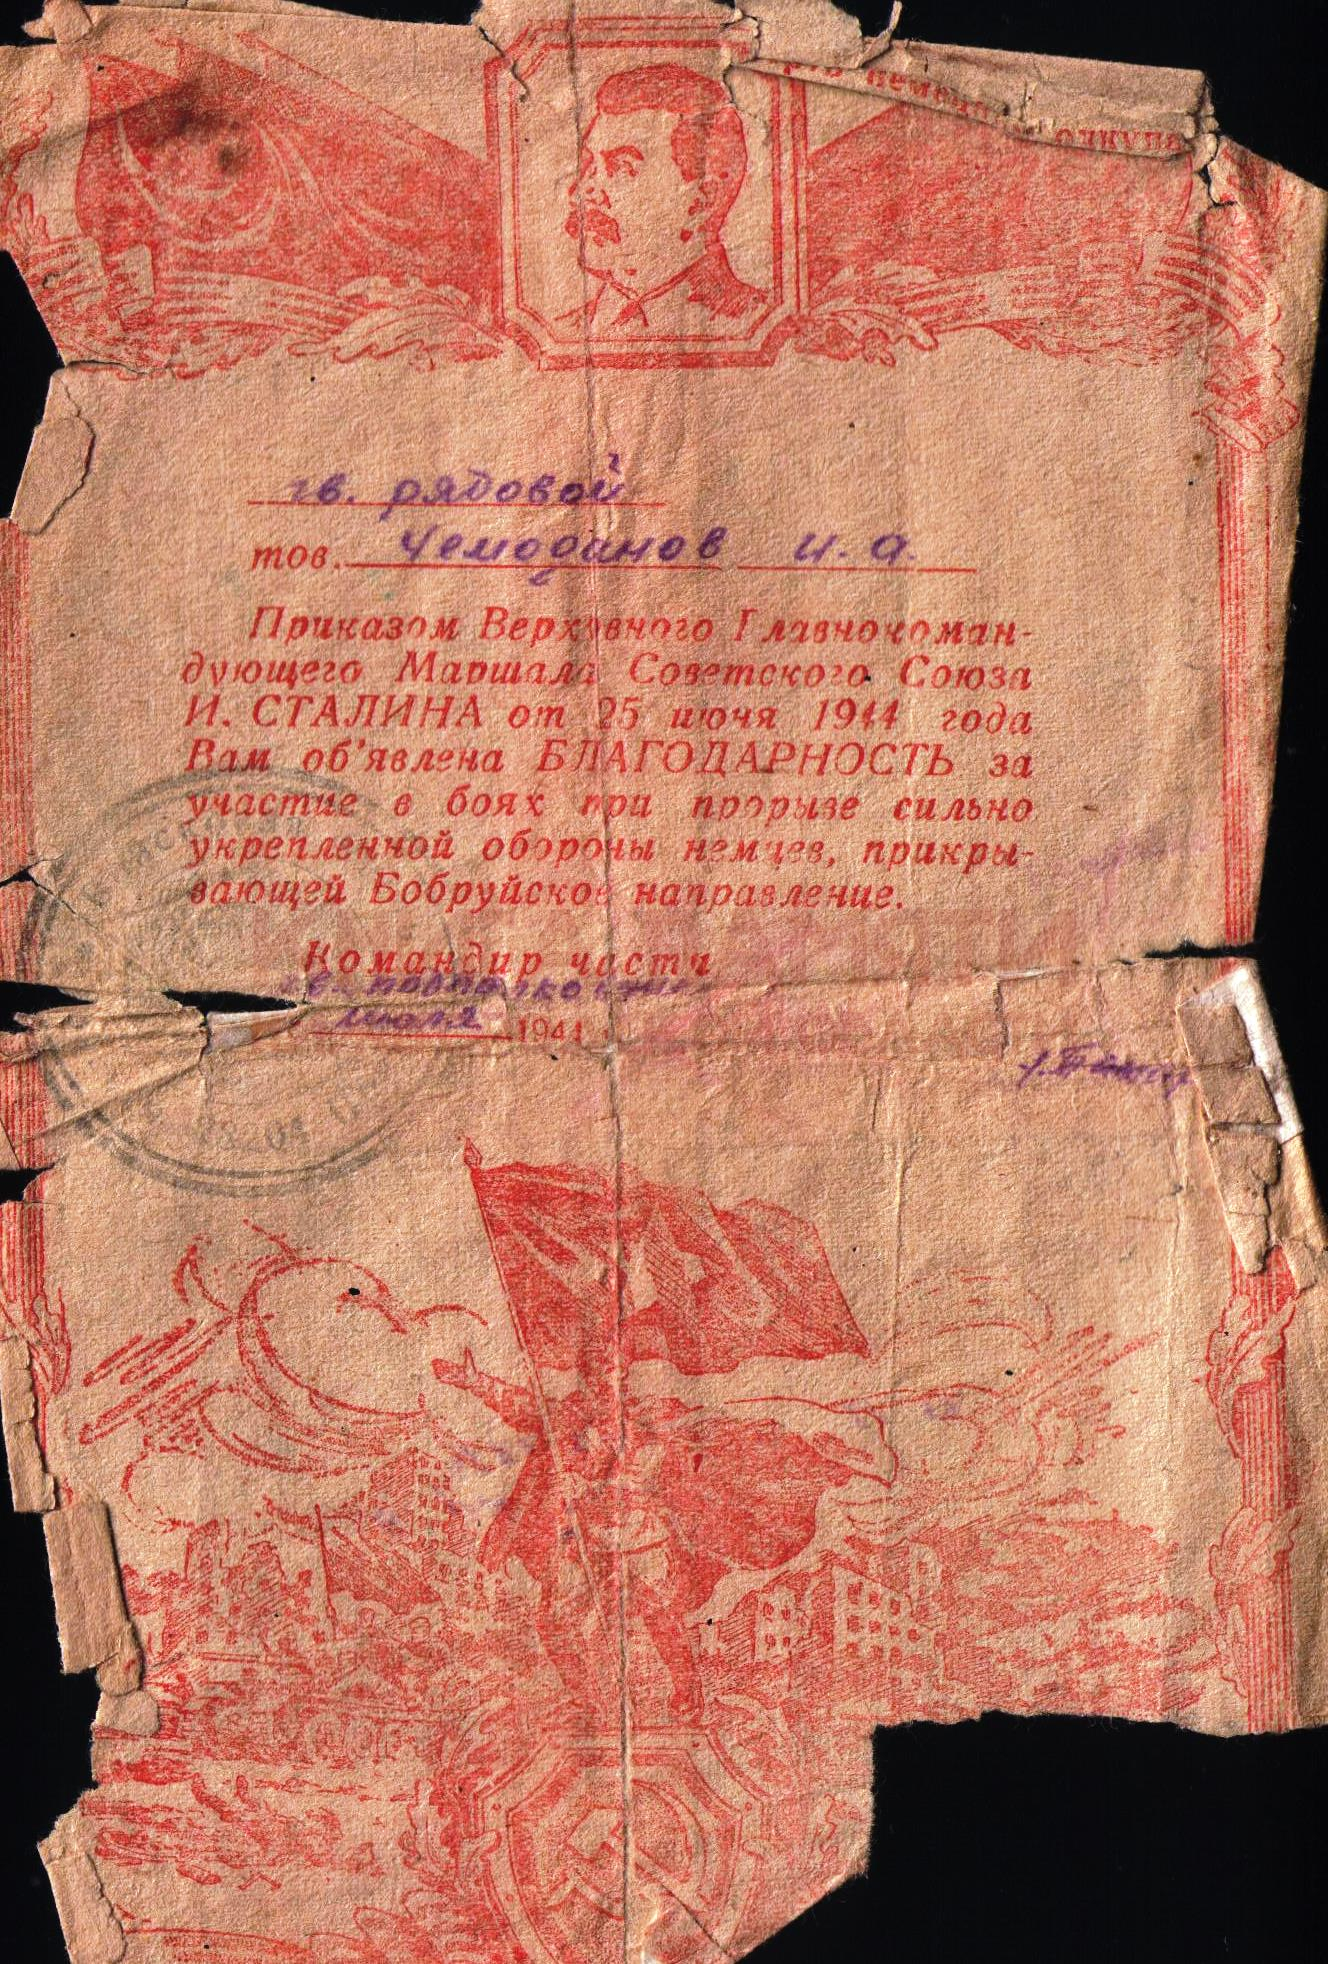 гв. рядовой
тов. Чемоданов И. А.
Приказом Верховного Главнокоман-
дующего Маршала Советского Союза
И. СТАЛИНА от 25 июня 1944 года
Вам об'явлена БЛАГОДАРНОСТЬ за
участие в боях при прорыве сильно
укрепленной обороны немцев, прикры-
вающей Бобруйское направление.
Командир части
гв. подполковник
июля 1944